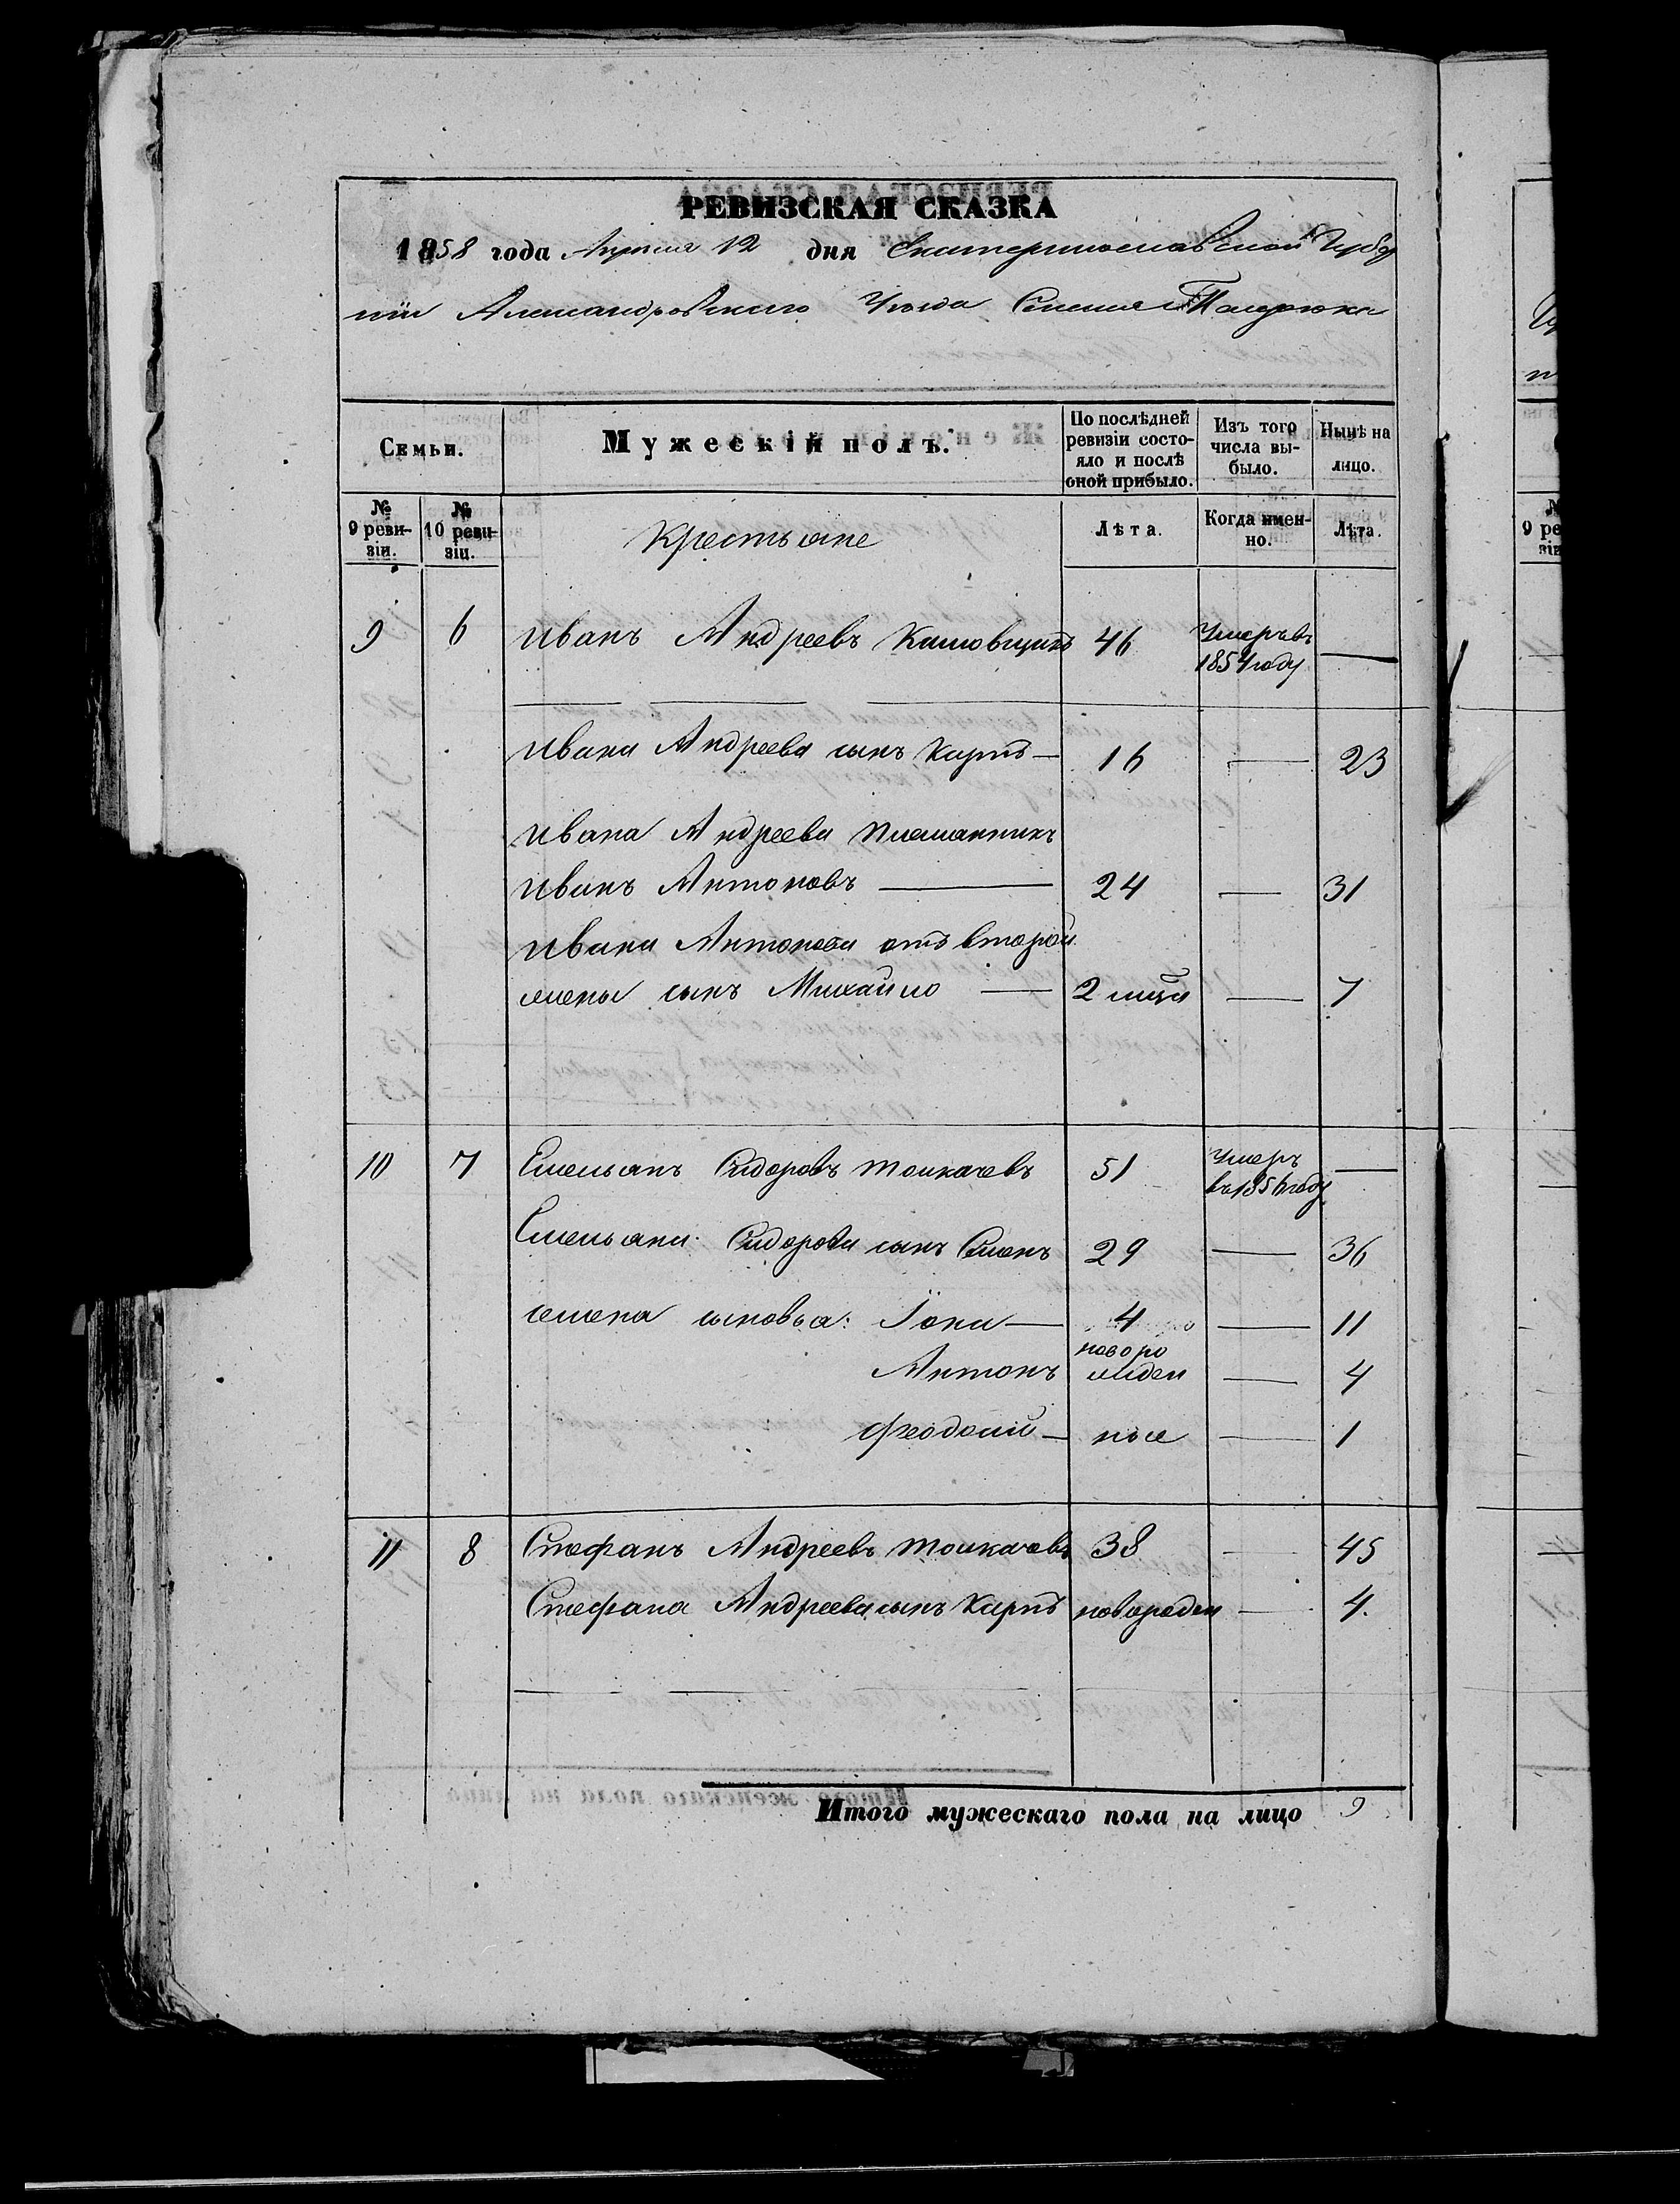 РЕВИЗСКАЯ СКАЗКА
1858 года Апреля 12 дня Екатеринославской Губер
ніи Александровскаго Уѣзда Селенія
Семьи. Мужескій полъ. По послѣдней ревизіи состояло и послѣ оной прибыло. Изъ того числа выбыло. Нынѣ на лицо.
№ 9 ревизіи. № 10 ревизіи. Крестьяне Лѣта. Когда именно. Лѣта.
9 6 Иванъ Андреевъ 46 Умеръ въ 1854 году —
Ивана Андреева сынъ Карпъ — 16 — 23
Ивана Андреева племянникъ
Иванъ Антоновъ — 24 — 31
Ивана Антонова отъ второй
жены сынъ Михайло — 2 мѣся — 7
10 7 Емельянъ Сидоровъ Толкачевъ 51 Умеръ въ 1856 году —
Емельяна Сидорова сынъ Семенъ 29 — 36
Семена сыновья: Іона — 4 — 11
Антонъ новоро жден — 4
Феодосій — ные — 1
11 8 Стефанъ Андреевъ Толкачевъ 38 — 45
Стефана Андреева сынъ Карпъ новорожден — 4.
Итого мужескаго пола на лицо 9
9 ре